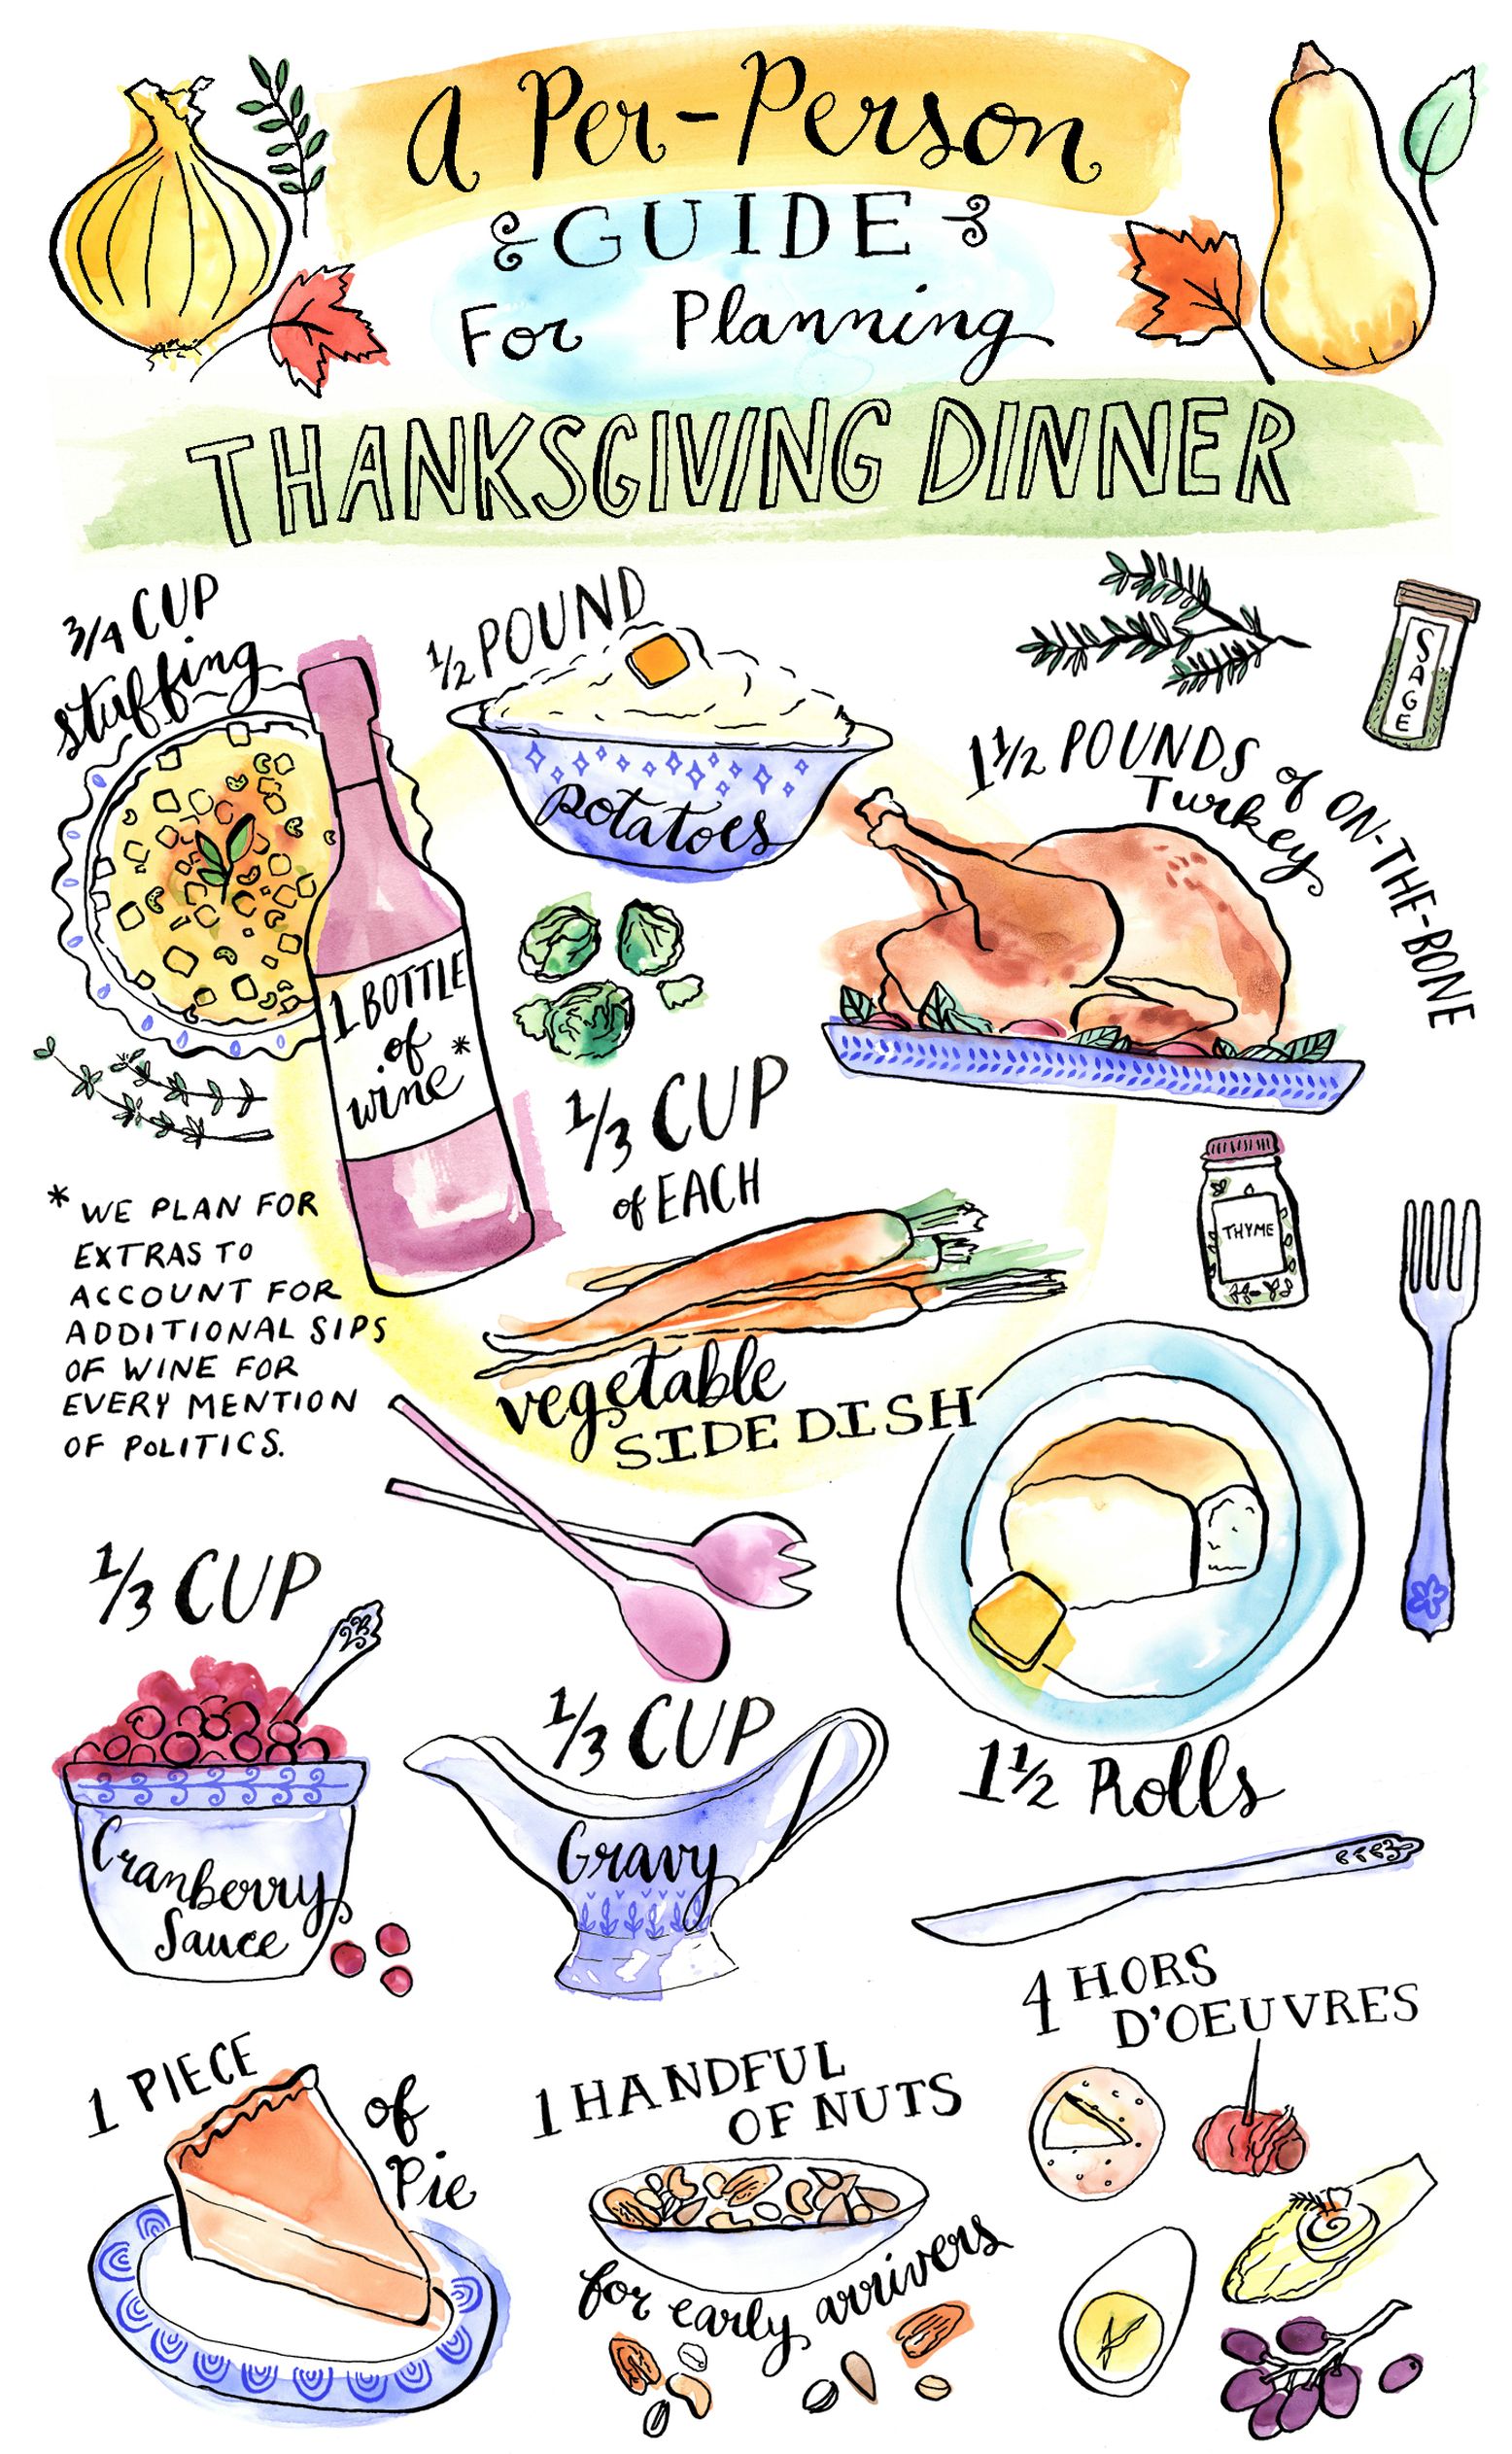 A Per-Person
GUIDE
For Planning
THANKSGIVING DINNER
3/4 CUP
stuffing
1/2 POUND
potatoes
SAGE
1 1/2 POUNDS of ON-THE-BONE
Turkey
1 BOTTLE
of
wine *
1/3 CUP
of EACH
vegetable
SIDE DISH
THYME
* WE PLAN FOR
EXTRAS TO
ACCOUNT FOR
ADDITIONAL SIPS
OF WINE FOR
EVERY MENTION
OF POLITICS.
1/3 CUP
Cranberry
Sauce
1/3 CUP
Gravy
1 1/2 Rolls
4 HORS
D'OEUVRES
1 PIECE
of
Pie
1 HANDFUL
OF NUTS
for early arrivers